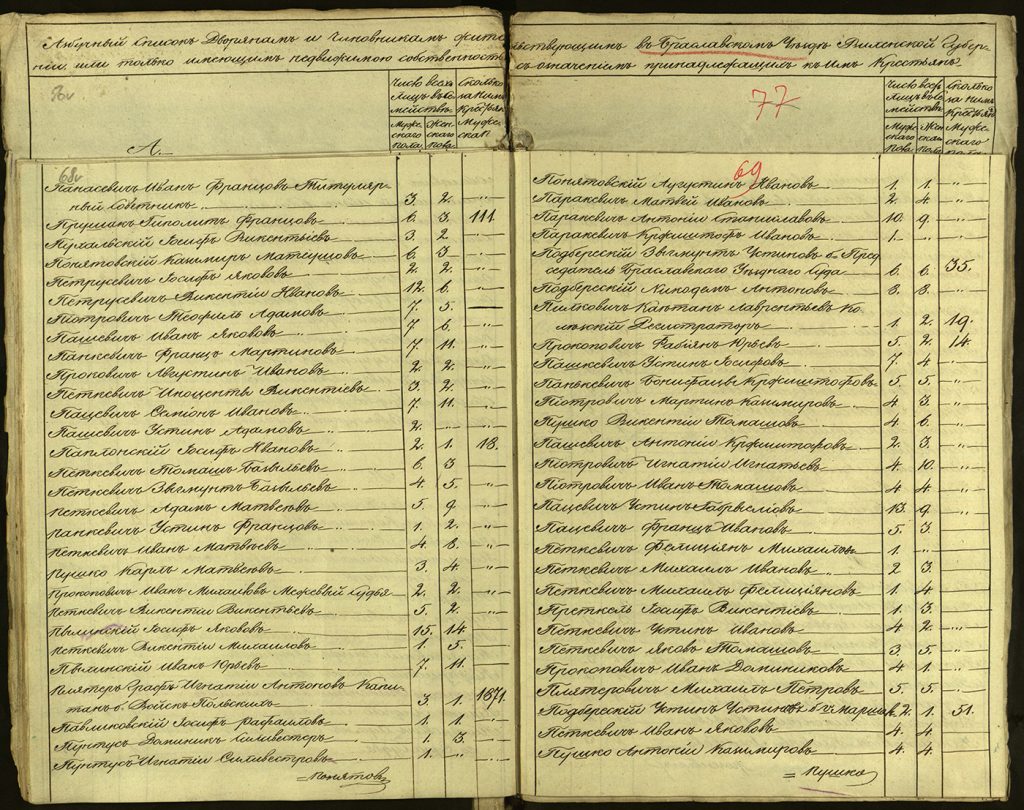 Азбучный Списокъ Дворянамъ и Чиновникамъ жительствующимъ въ Браславскомъ Уѣздѣ Виленской Губер-
нiи или только имеющимъ недвижимою собственность съ означенiемъ принадлежащихъ къ имъ Крестьянъ
Число всехъ Лицъ въ се-мействѣ
Мужескаго пола
Женскаго пола
Сколько за ними Крестьянъ Мужескаго
77
А.
68v
Панасевичъ Иванъ Францовъ Титуляр-
ный Советникъ 3. 2. "
Прушакъ Гiполитъ Францовъ 6. 3. 111.
Пухальскiй Iосифъ Викентьевъ 3. 2. "
Понятовскiй Казимиръ Матеушовъ 6. 3 "
Петрусевичъ Iосифъ Якововъ 2. 2. "
Петрусевичъ Викентiй Ивановъ 12. 6. "
Пiотровичъ Теофиль Адамовъ 7. 5.
Пашевичъ Иванъ Якововъ 7 6. "
Панкевичъ Францъ Мартиновъ 7. 11. "
Проковичъ Августинъ Ивановъ 2. 2. "
Петкевичъ Иноценты Викентiевъ 3. 2. "
Пацевичъ Семiонъ Ивановъ 7. 11. "
Пашевичъ Устинъ Адамовъ 2. "
Паплонскiй Iосифъ Ивановъ 2. 1. 18.
Петкевичъ Томашъ Базыльевъ 6. 3 "
Петкевичъ Зыгмунтъ Базыльевъ 4. 5. "
Петкевичъ Адамъ Матвеювъ 5. 9. "
Панкевичъ Устинъ Францовъ 1. 2. "
Петкевичъ Иванъ Матвѣевъ 4. 8. "
Пушко Карлъ Матвеювъ 3. 4. "
Прокоповичъ Иванъ Михайловъ Межевый Судья 2. 2. "
Петкевичъ Викентiй Викентьевъ 5. 2. "
Пылинскiй Iосифъ Якововъ 15. 14
Петкевичъ Викентiй Михаиловъ 1. 5.
Пылинскiй Иванъ Юрьевъ 7. 11.
Плятеръ Графъ Игнатiй Антоновъ Капи-
танъ б. Войскъ Польскихъ 3. 1. 1871.
Павликовскiй Iосифъ Рафаиловъ 1. 1. "
Пунтусъ Доминикъ Сильвесторъ 1. 3. "
Пунтусъ Игнатiй Сильвестровъ 1. "
Понятов
69
Понятовскiй Аугустинъ Ивановъ 1. 1. "
Паракевичъ Матвей Ивановъ 2. 4 "
Паракевичъ Антонiй Станиславовъ 10. 9. "
Паракевичъ Кржиштофъ Ивановъ 1. "
Подберскiй Зыгмунтъ Устиновъ б. Пред
седатель Браславскаго Уѣзднаго Суда 6. 6. 35.
Подберскiй Никодемъ Антоновъ 3. 3. "
Пилковичъ Каетанъ Лаврентьевъ Ко-
лѣжскiй Регистраторъ 1. 2. 19.
Прокоповичъ Фабiянъ Юрьевъ 5. 2. 14.
Пашкевичъ Устинъ Iосифовъ 7 4 "
Панькевичъ Бонифацы Кржиштофовъ 5. 5. "
Пiотровичъ Мартинъ Казимировъ 4 3 "
Пушко Викентiй Томашовъ 4 6. "
Пашевичъ Антонiй Кржиштофовъ 2. 3. "
Пiотровичъ Игнатiй Игнатьевъ 4. 10. "
Пiотровичъ Иванъ Томашовъ 4 4. "
Пацевичъ Устинъ Габрыелiовъ 13. 9 "
Пацевичъ Францъ Ивановъ 5. 3.
Петкевичъ Фелицiянъ Михаилъ 1. "
Петкевичъ Михаилъ Ивановъ 2 3. "
Петкевичъ Михаилъ Фелицiяновъ 1. 4 "
Преткель Iосифъ Викентiевъ 1. 3.
Петкевичъ Устинъ Ивановъ 4 2. "
Петкевичъ Яковъ Томашовъ 3. 5. "
Прокоповичъ Иванъ Доминиковъ 4 1. "
Плятеровичъ Михаилъ Петровъ 5. 5. "
Подберскiй Устинъ Устиновъ маршал. 2. 1. 51.
Петкевичъ Иванъ Якововъ 4. 4. "
Пушко Антонiй Казимировъ 4 4. "
Пушко